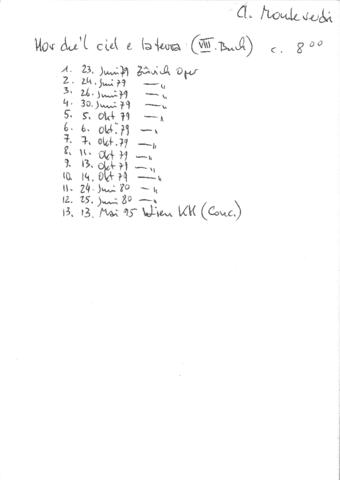 Cl. Monteverdi
Hor che'l ciel e la terra (VIII. Buch) c. 8°°
1. 23. Juni 79 Zürich Oper
2. 24. Juni 79 —"
3. 26. Juni 79 —"
4. 30. Juni 79 —"
5. 5. Okt 79 —"
6. 6. Okt. 79 —"
7. 7. Okt. 79 —"
8. 11. Okt 79 —"
9. 13. Okt 79 —"
10. 14. Okt 79 —"
11. 24. Juni 80 —"
12. 25. Juni 80 —"
13. 13. Mai 95 Wien KH (Conc.)